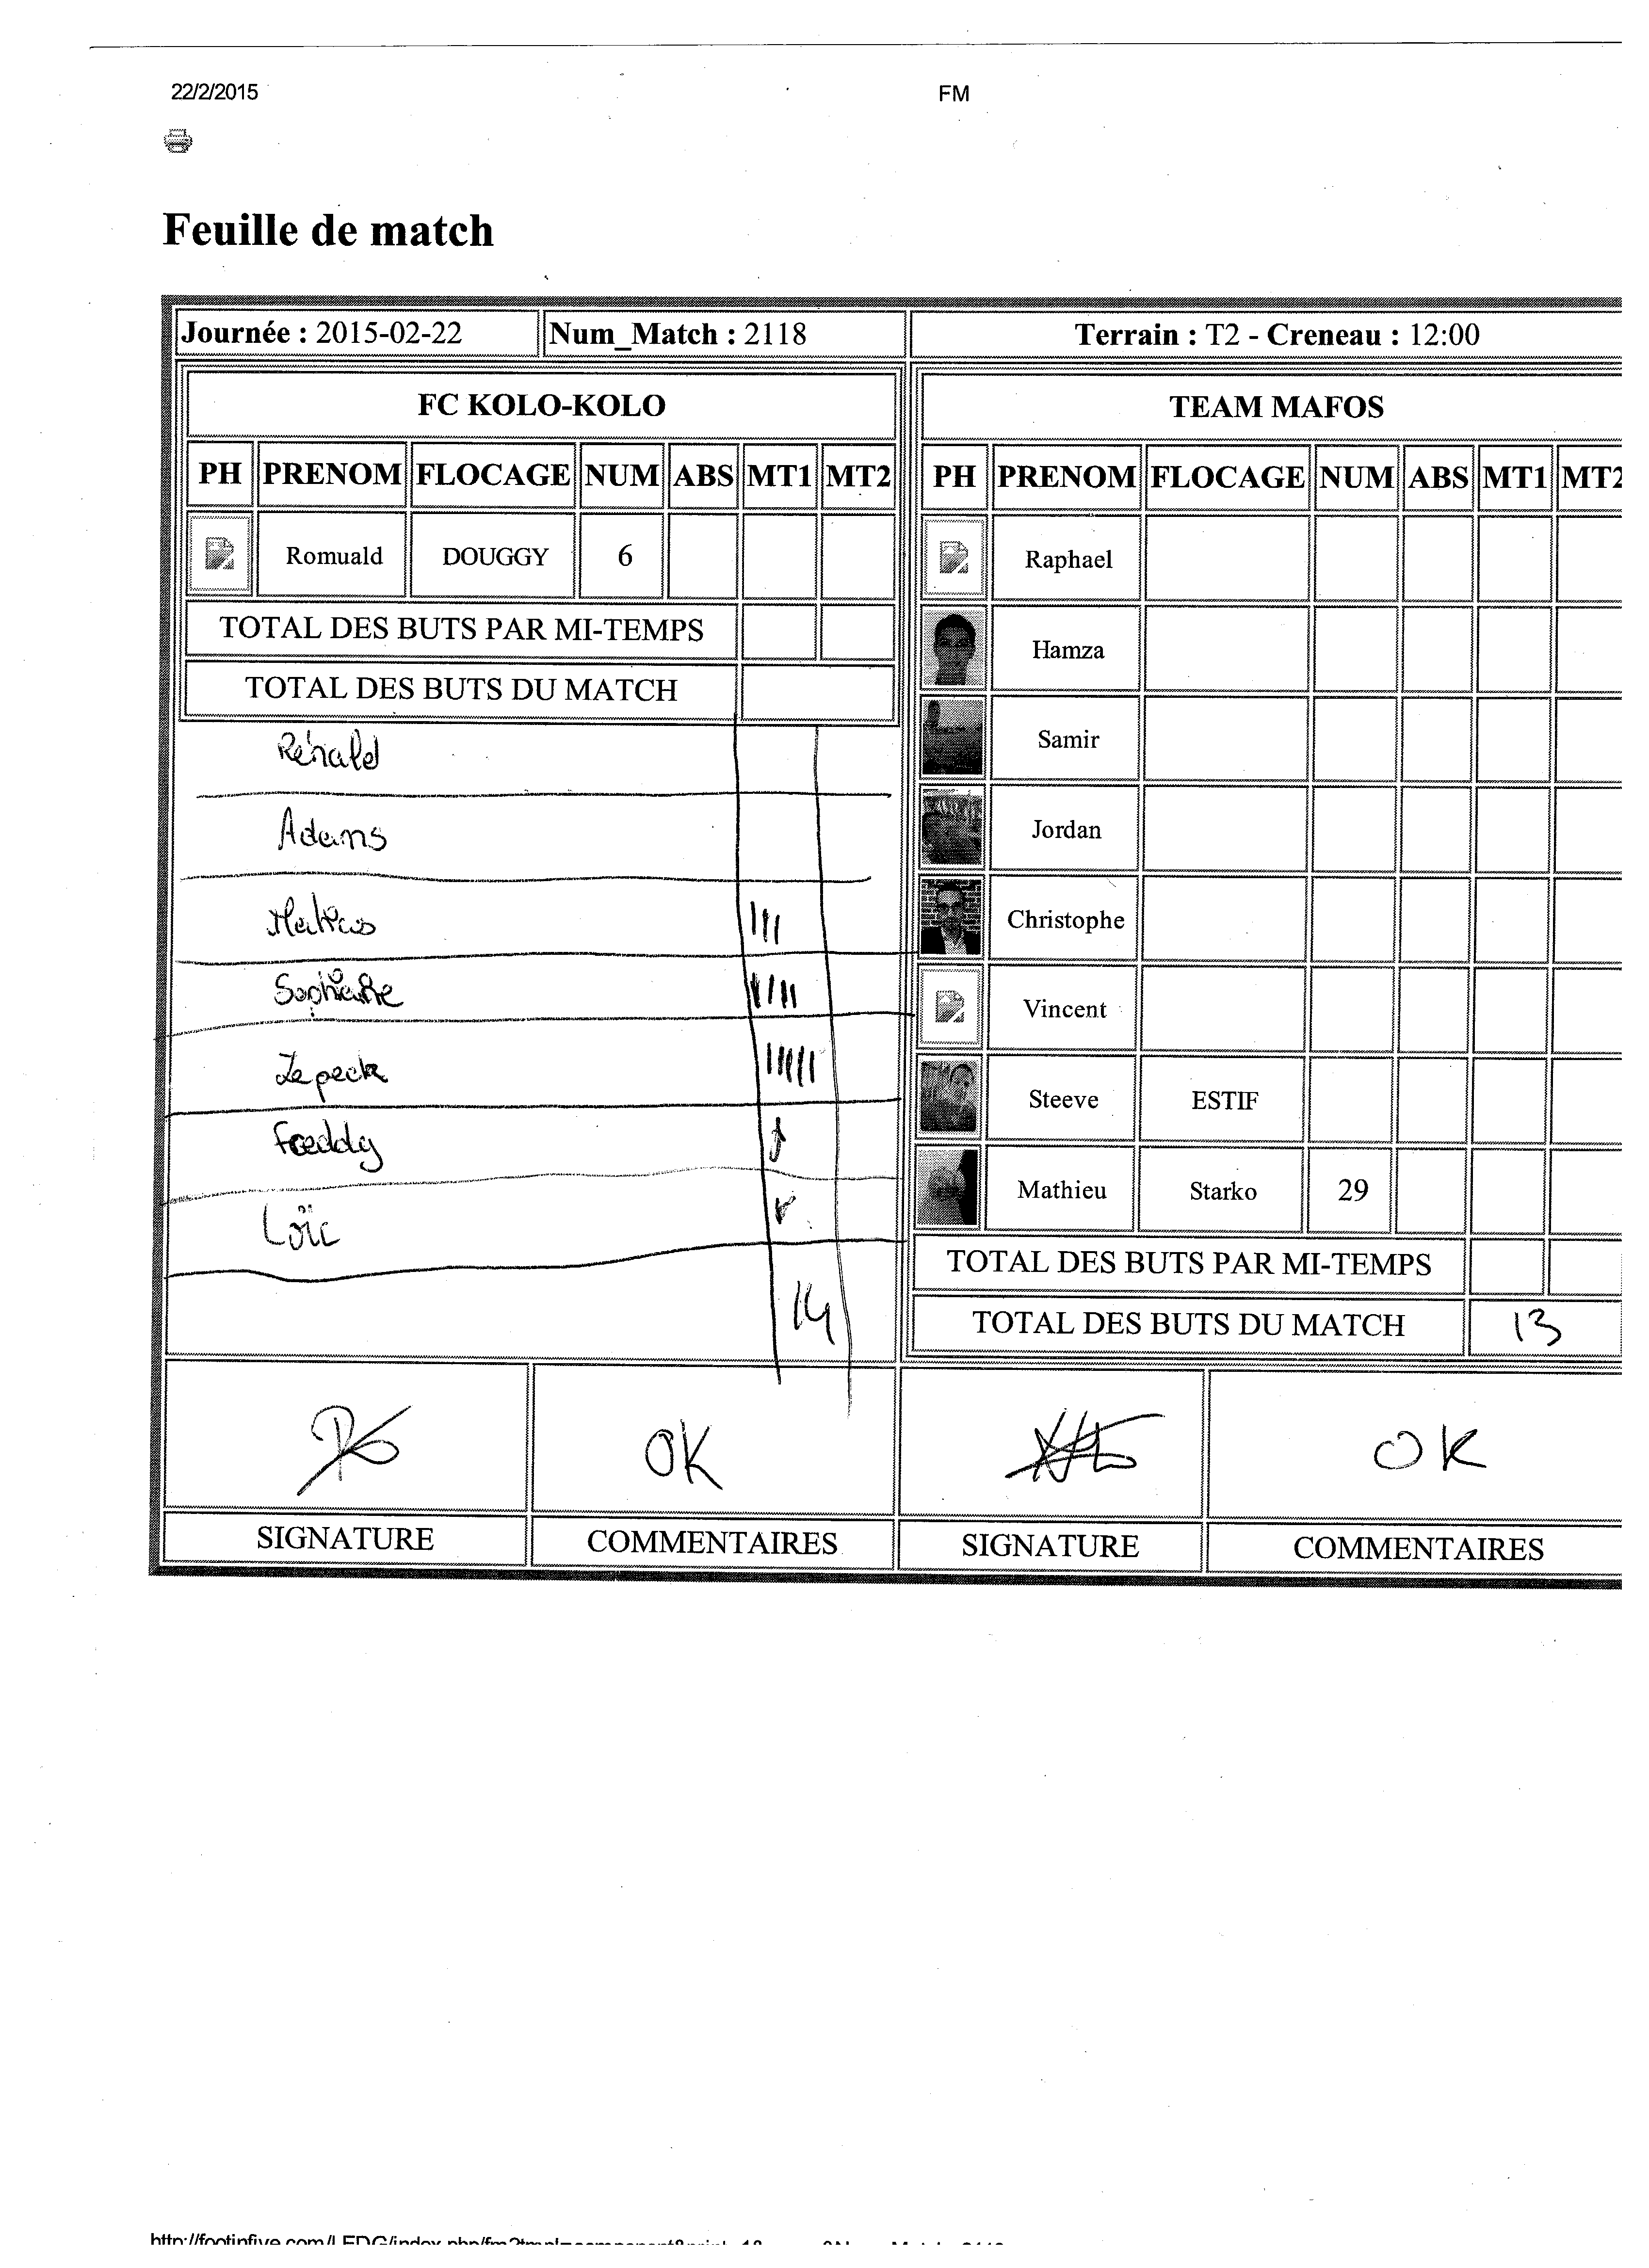 22/2/2015 FM
Feuille de match
Journée : 2015-02-22 Num_Match : 2118 Terrain : T2 - Creneau : 12:00
FC KOLO-KOLO
PH PRENOM FLOCAGE NUM ABS MT1 MT2
Romuald DOUGGY 6
TOTAL DES BUTS PAR MI-TEMPS
TOTAL DES BUTS DU MATCH
Rénald
Adams
Zepeck
Freddy
Loïc
14
TEAM MAFOS
PH PRENOM FLOCAGE NUM ABS MT1 MT2
Raphael
Hamza
Samir
Jordan
Christophe
Vincent
Steeve ESTIF
Mathieu Starko 29
TOTAL DES BUTS PAR MI-TEMPS
TOTAL DES BUTS DU MATCH 13
OK OK
SIGNATURE COMMENTAIRES SIGNATURE COMMENTAIRES